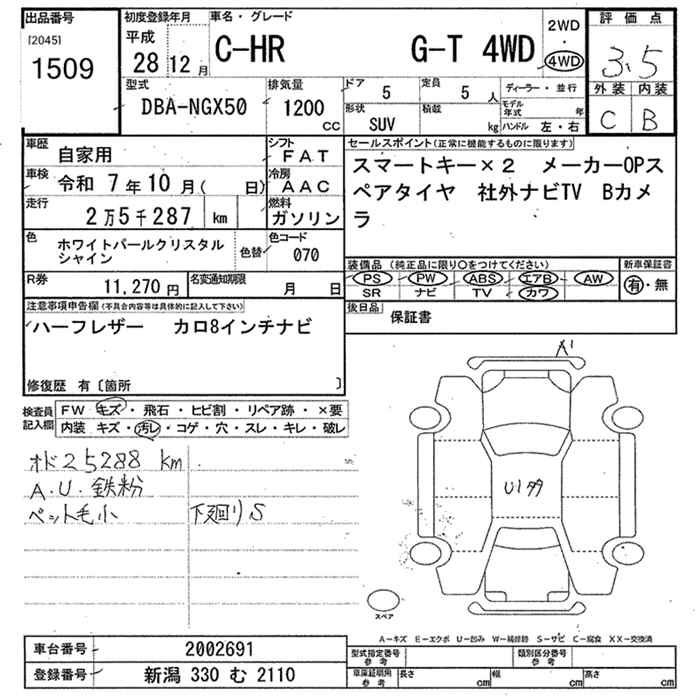 出品番号
[2045]
1509
初度登録年月
平成
28 12 月
車名・グレード
C-HR G-T 4WD
2WD
・
4WD
評価点
3.5
外装 内装
C B
型式
DBA-NGX50
排気量
1200
CC
ドア
5
定員
5 人
形状
SUV
積載
kg
ディーラー・並行
モデル年式 年
ハンドル 左・右
車歴
自家用
シフト
FAT
車検
令和 7年10月( 日)
冷房
AAC
走行
2万5千287 km
燃料
ガソリン
色
ホワイトパールクリスタル
シャイン
色替
色コード
070
R券
11,270円
名変通知期限
月 日
セールスポイント(正常に機能するものに限ります)
スマートキー×2 メーカーOPス
ペアタイヤ 社外ナビTV Bカメ
ラ
装備品(純正品に限り○をつけてください)
PS PW ABS エアB AW
SR ナビ TV カワ
新車保証書
有・無
後日品
保証書
注意事項申告欄(不具合内容等は具体的に記入して下さい)
ハーフレザー カロ8インチナビ
修復歴 有〔箇所 〕
検査員
記入欄
FW キズ・飛石・ヒビ割・リペア跡・×要
内装 キズ・汚レ・コゲ・穴・スレ・キレ・破レ
オド25288 km
A.U.鉄粉
ペット毛小 下廻りS
A1
U1タタ
スペア
A－キズ E－エクボ U－凹み W－補修跡 S－サビ C－腐食 XX－交換済
車台番号
2002691
登録番号
新潟 330 む 2110
型式指定番号
参考
類別区分番号
参考
車庫証明用
参考
長さ cm
幅 cm
高さ cm